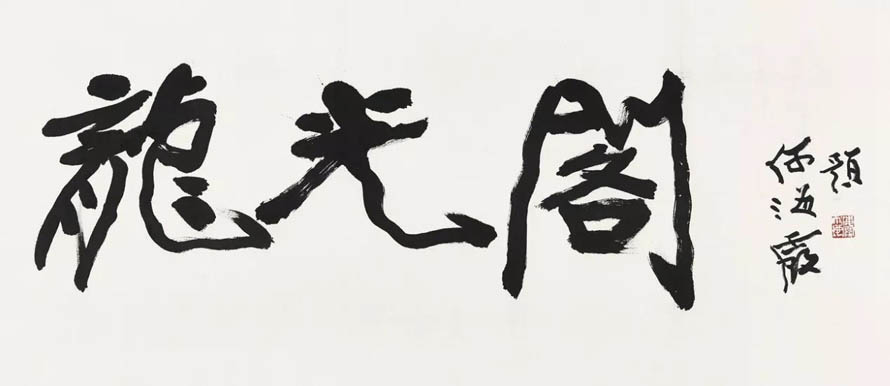 龍光閣
何海霞
題